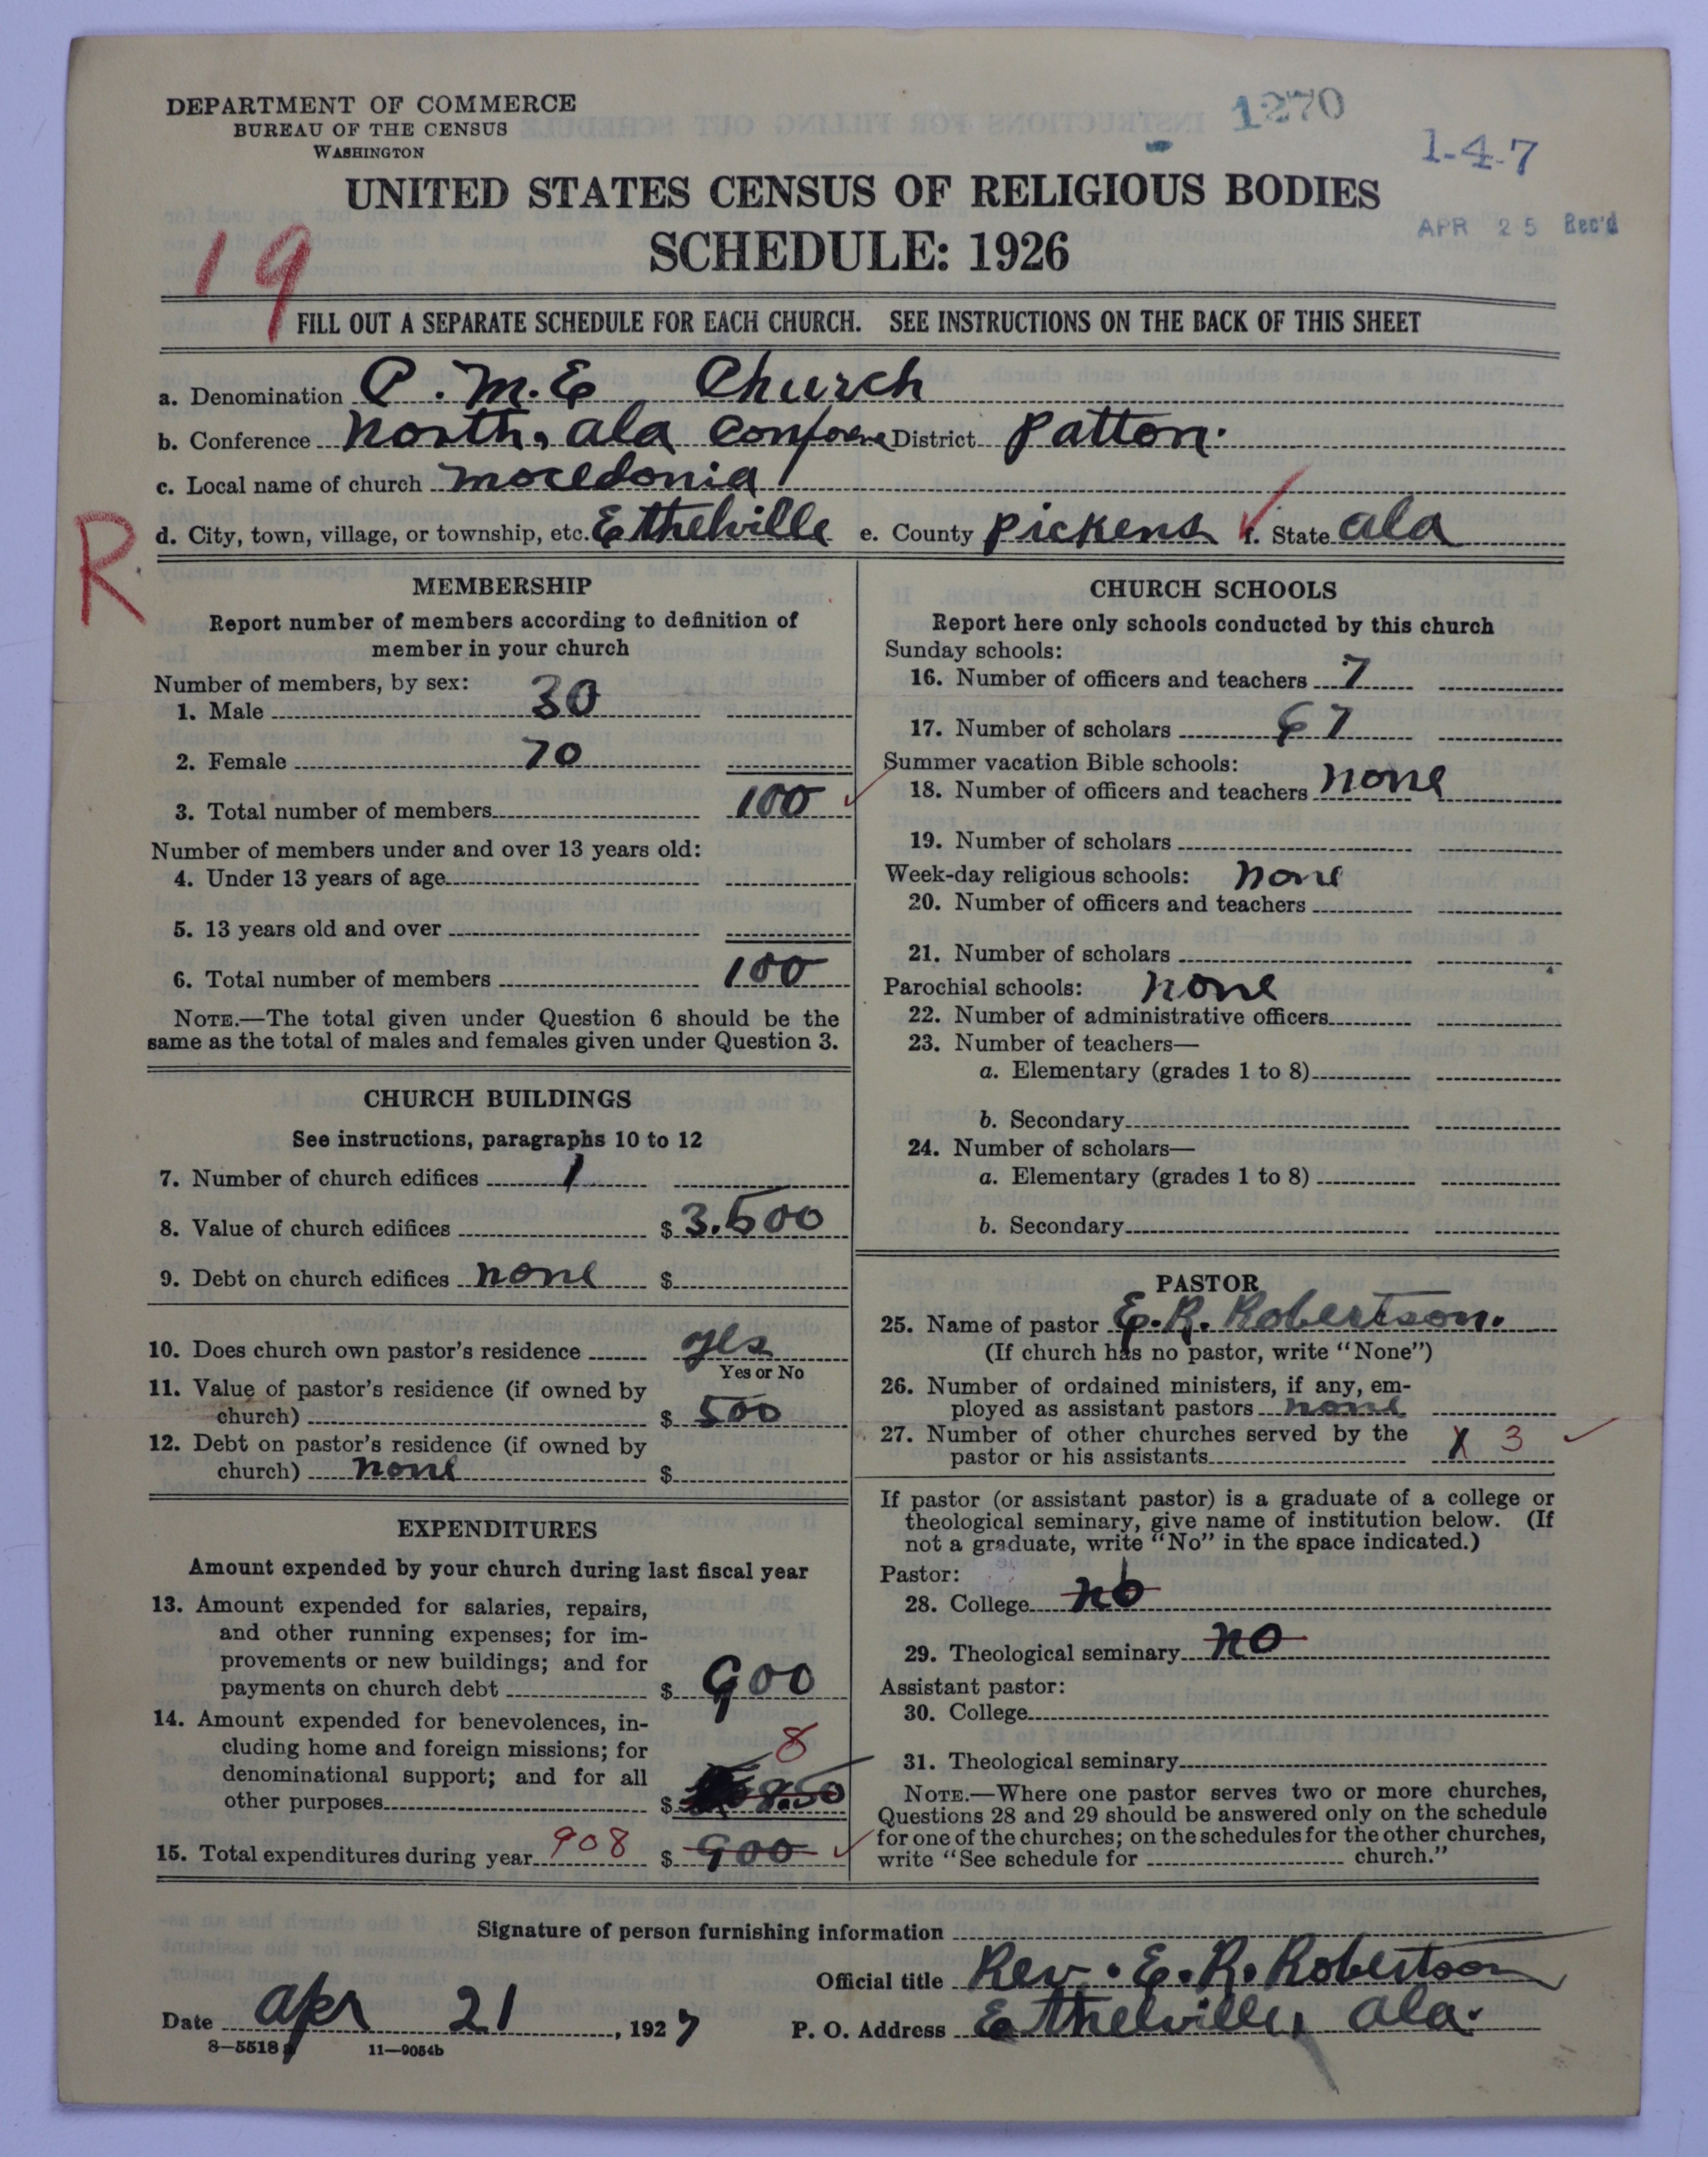 DEPARTMENT OF COMMERCE
BUREAU OF THE CENSUS
WASHINGTON
1270
1-4-7
UNITED STATES CENSUS OF RELIGIOUS BODIES
SCHEDULE: 1926
APR 25 Rec'd
19
FILL OUT A SEPARATE SCHEDULE FOR EACH CHURCH. SEE INSTRUCTIONS ON THE BACK OF THIS SHEET
a. Denomination C. M. E Church
b. Conference North, ala District Patton.
c. Local name of church Mocedonia
d. City, town, village, or township, etc. Ethelville e. County Pickens f. State ala
R
MEMBERSHIP
Report number of members according to definition of
member in your church
Number of members, by sex:
1. Male 30
2. Female 70
3. Total number of members 100
Number of members under and over 13 years old:
4. Under 13 years of age
5. 13 years old and over
6. Total number of members 100
NOTE.—The total given under Question 6 should be the
same as the total of males and females given under Question 3.
CHURCH BUILDINGS
See instructions, paragraphs 10 to 12
7. Number of church edifices 1
8. Value of church edifices $ 3.500
9. Debt on church edifices none $
10. Does church own pastor's residence yes
Yes or No
11. Value of pastor's residence (if owned by
church) $ 500
12. Debt on pastor's residence (if owned by
church) none $
EXPENDITURES
Amount expended by your church during last fiscal year
13. Amount expended for salaries, repairs,
and other running expenses; for im-
provements or new buildings; and for
payments on church debt $ 900
14. Amount expended for benevolences, in-
cluding home and foreign missions; for
denominational support; and for all
other purposes $ 8.50 8
15. Total expenditures during year 908 $ 900
CHURCH SCHOOLS
Report here only schools conducted by this church
Sunday schools:
16. Number of officers and teachers 7
17. Number of scholars 67
Summer vacation Bible schools:
18. Number of officers and teachers none
19. Number of scholars
Week-day religious schools: none
20. Number of officers and teachers
21. Number of scholars
Parochial schools: none
22. Number of administrative officers
23. Number of teachers—
a. Elementary (grades 1 to 8)
b. Secondary
24. Number of scholars—
a. Elementary (grades 1 to 8)
b. Secondary
PASTOR
25. Name of pastor E. R. Robertson.
(If church has no pastor, write "None")
26. Number of ordained ministers, if any, em-
ployed as assistant pastors none
27. Number of other churches served by the
pastor or his assistants 3
If pastor (or assistant pastor) is a graduate of a college or
theological seminary, give name of institution below. (If
not a graduate, write "No" in the space indicated.)
Pastor:
28. College no
29. Theological seminary no
Assistant pastor:
30. College
31. Theological seminary
NOTE.—Where one pastor serves two or more churches,
Questions 28 and 29 should be answered only on the schedule
for one of the churches; on the schedules for the other churches,
write "See schedule for church."
Signature of person furnishing information
Official title Rev. E. R. Robertson
Date apr 21, 1927 P. O. Address Ethelville, ala.
8—5518 11—9054b